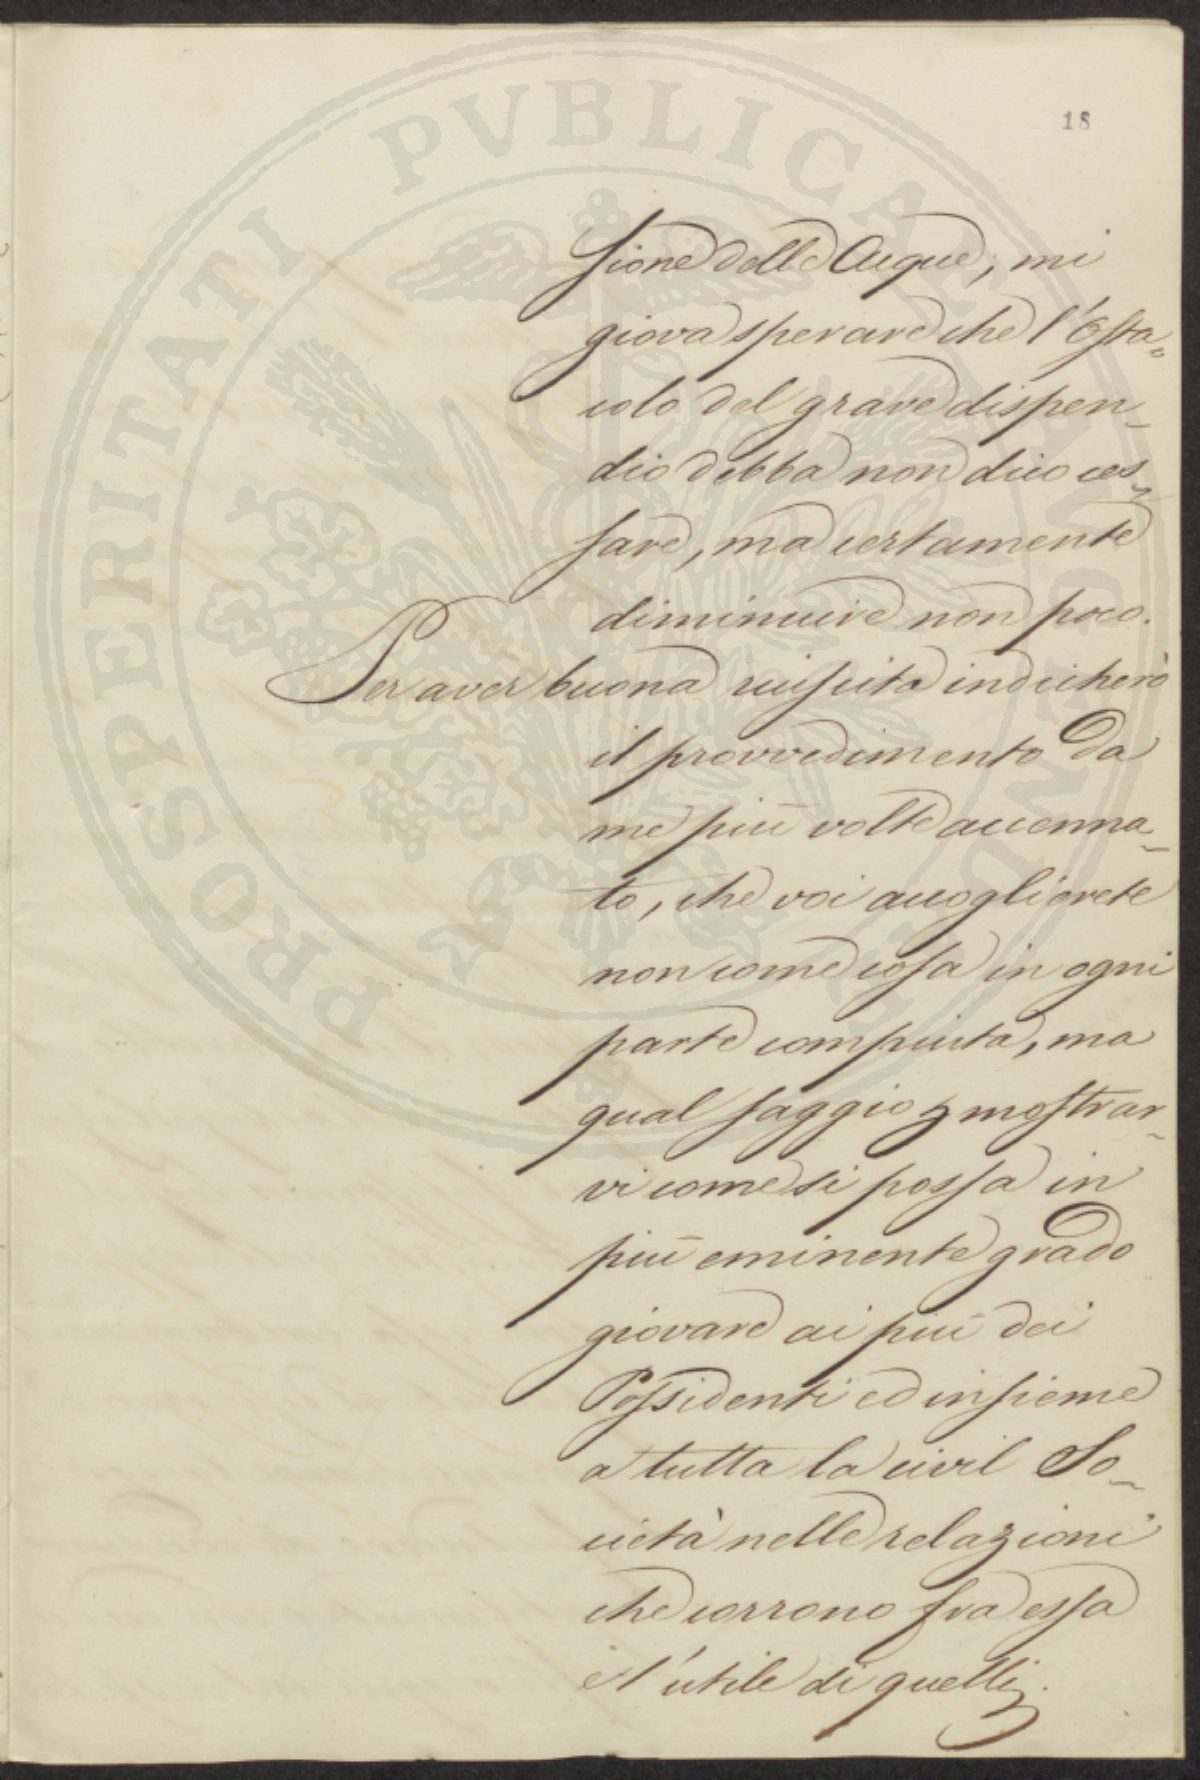 18
sione delle Acque, mi
giova sperare che l'Osta=
colo del grave dispen-
dio debba non dico ces-
sare, ma certamente
diminuire non poco.
Per aver buona riuscita indicherò
il provvedimento da
me più volte accenna-
to, che voi accoglierete
non come cosa in ogni
parte compiuta, ma
qual saggio p mostrar-
vi come si possa in
più eminente grado
giovare ai più dei
Possidenti ed insieme
a tutta la civil So-
cietà nelle relazioni
che corrono fra essa
e l'utile di quelli.
PROSPERITATI PVBLICAE AVGENDAE